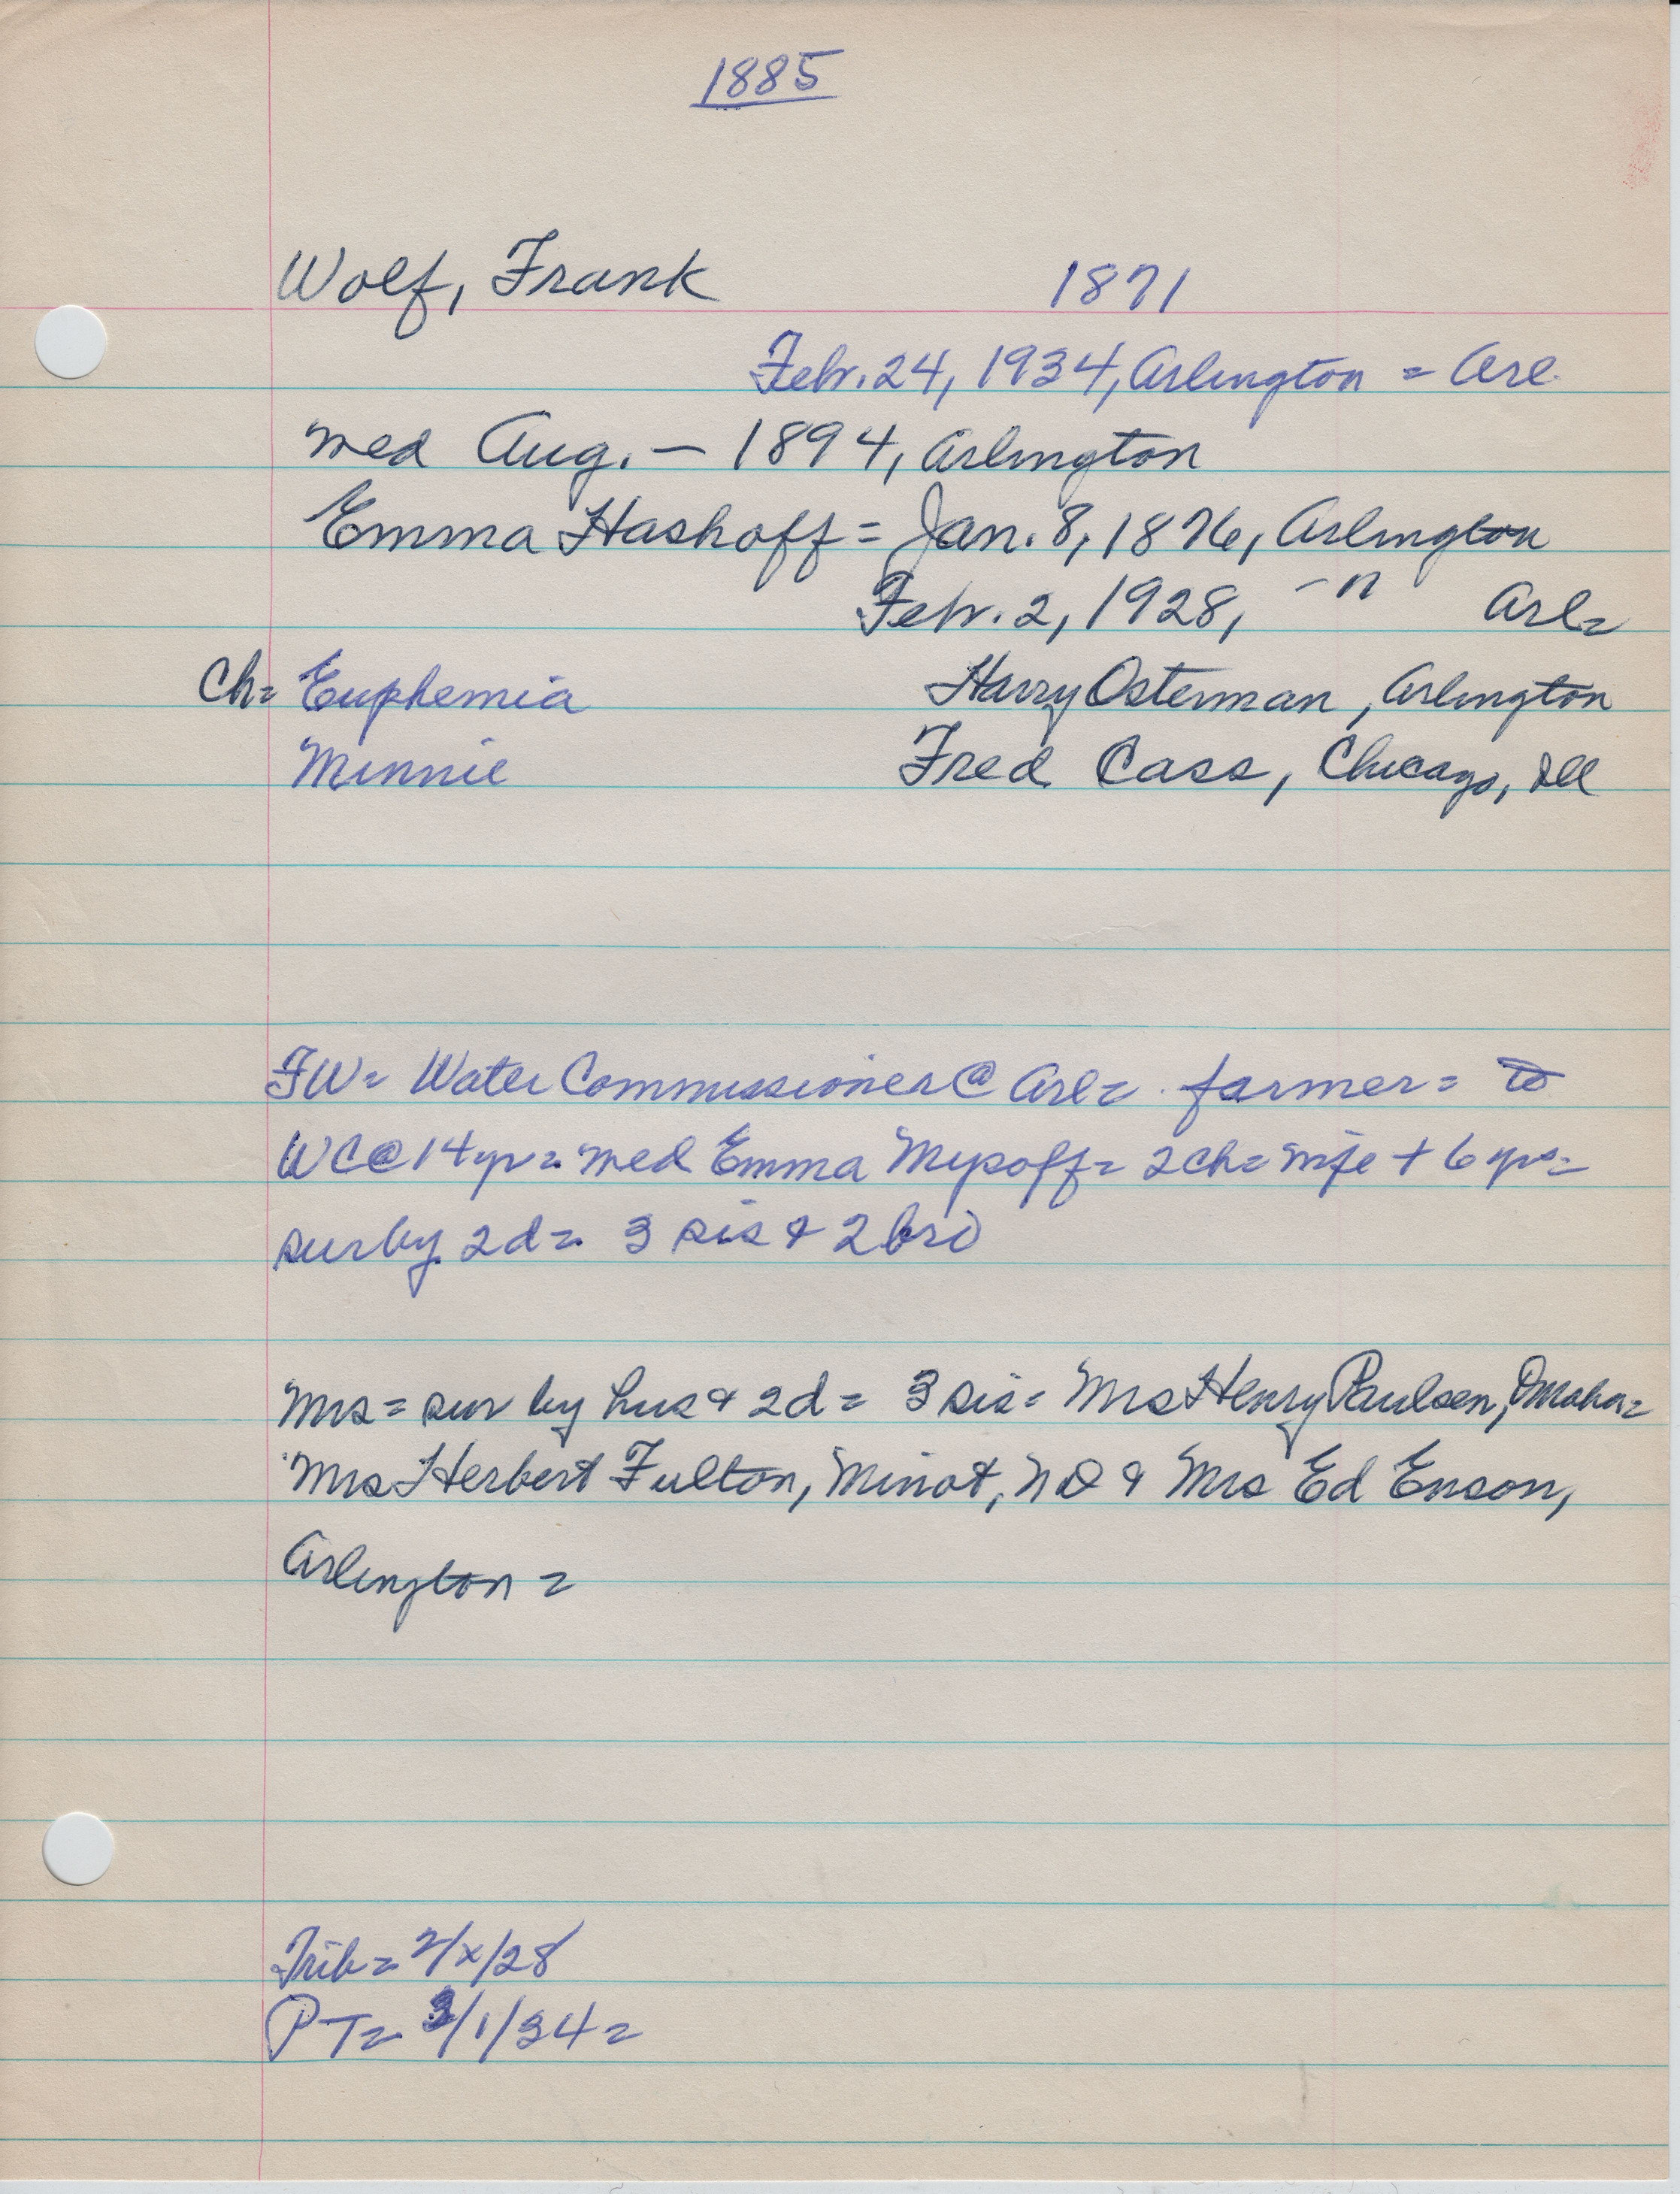 1885
Wolf, Frank 1871
Feb. 24, 1934, Arlington = Arl.
med Aug. — 1894, Arlington
Emma Hashoff = Jan. 8, 1876, Arlington
Feb. 2, 1928, — " Arl=
Ch= Euphemia Harry Osterman, Arlington
Minnie Fred Cass, Chicago, Ill
FW= Water Commissioner @ Arl= farmer=
WC @ 14 yr= med Emma Mysoff= 2 ch= wife + 6 yrs=
sur by 2d= 3 sis & 2 bro
Mrs= sur by hus & 2d= 3 sis= Mrs Henry Paulsen, Omaha=
Mrs Herbert Fulton, Minot, ND & Mrs Ed Enson,
Arlington =
Trib= 2/x/28
PT= 3/1/34=